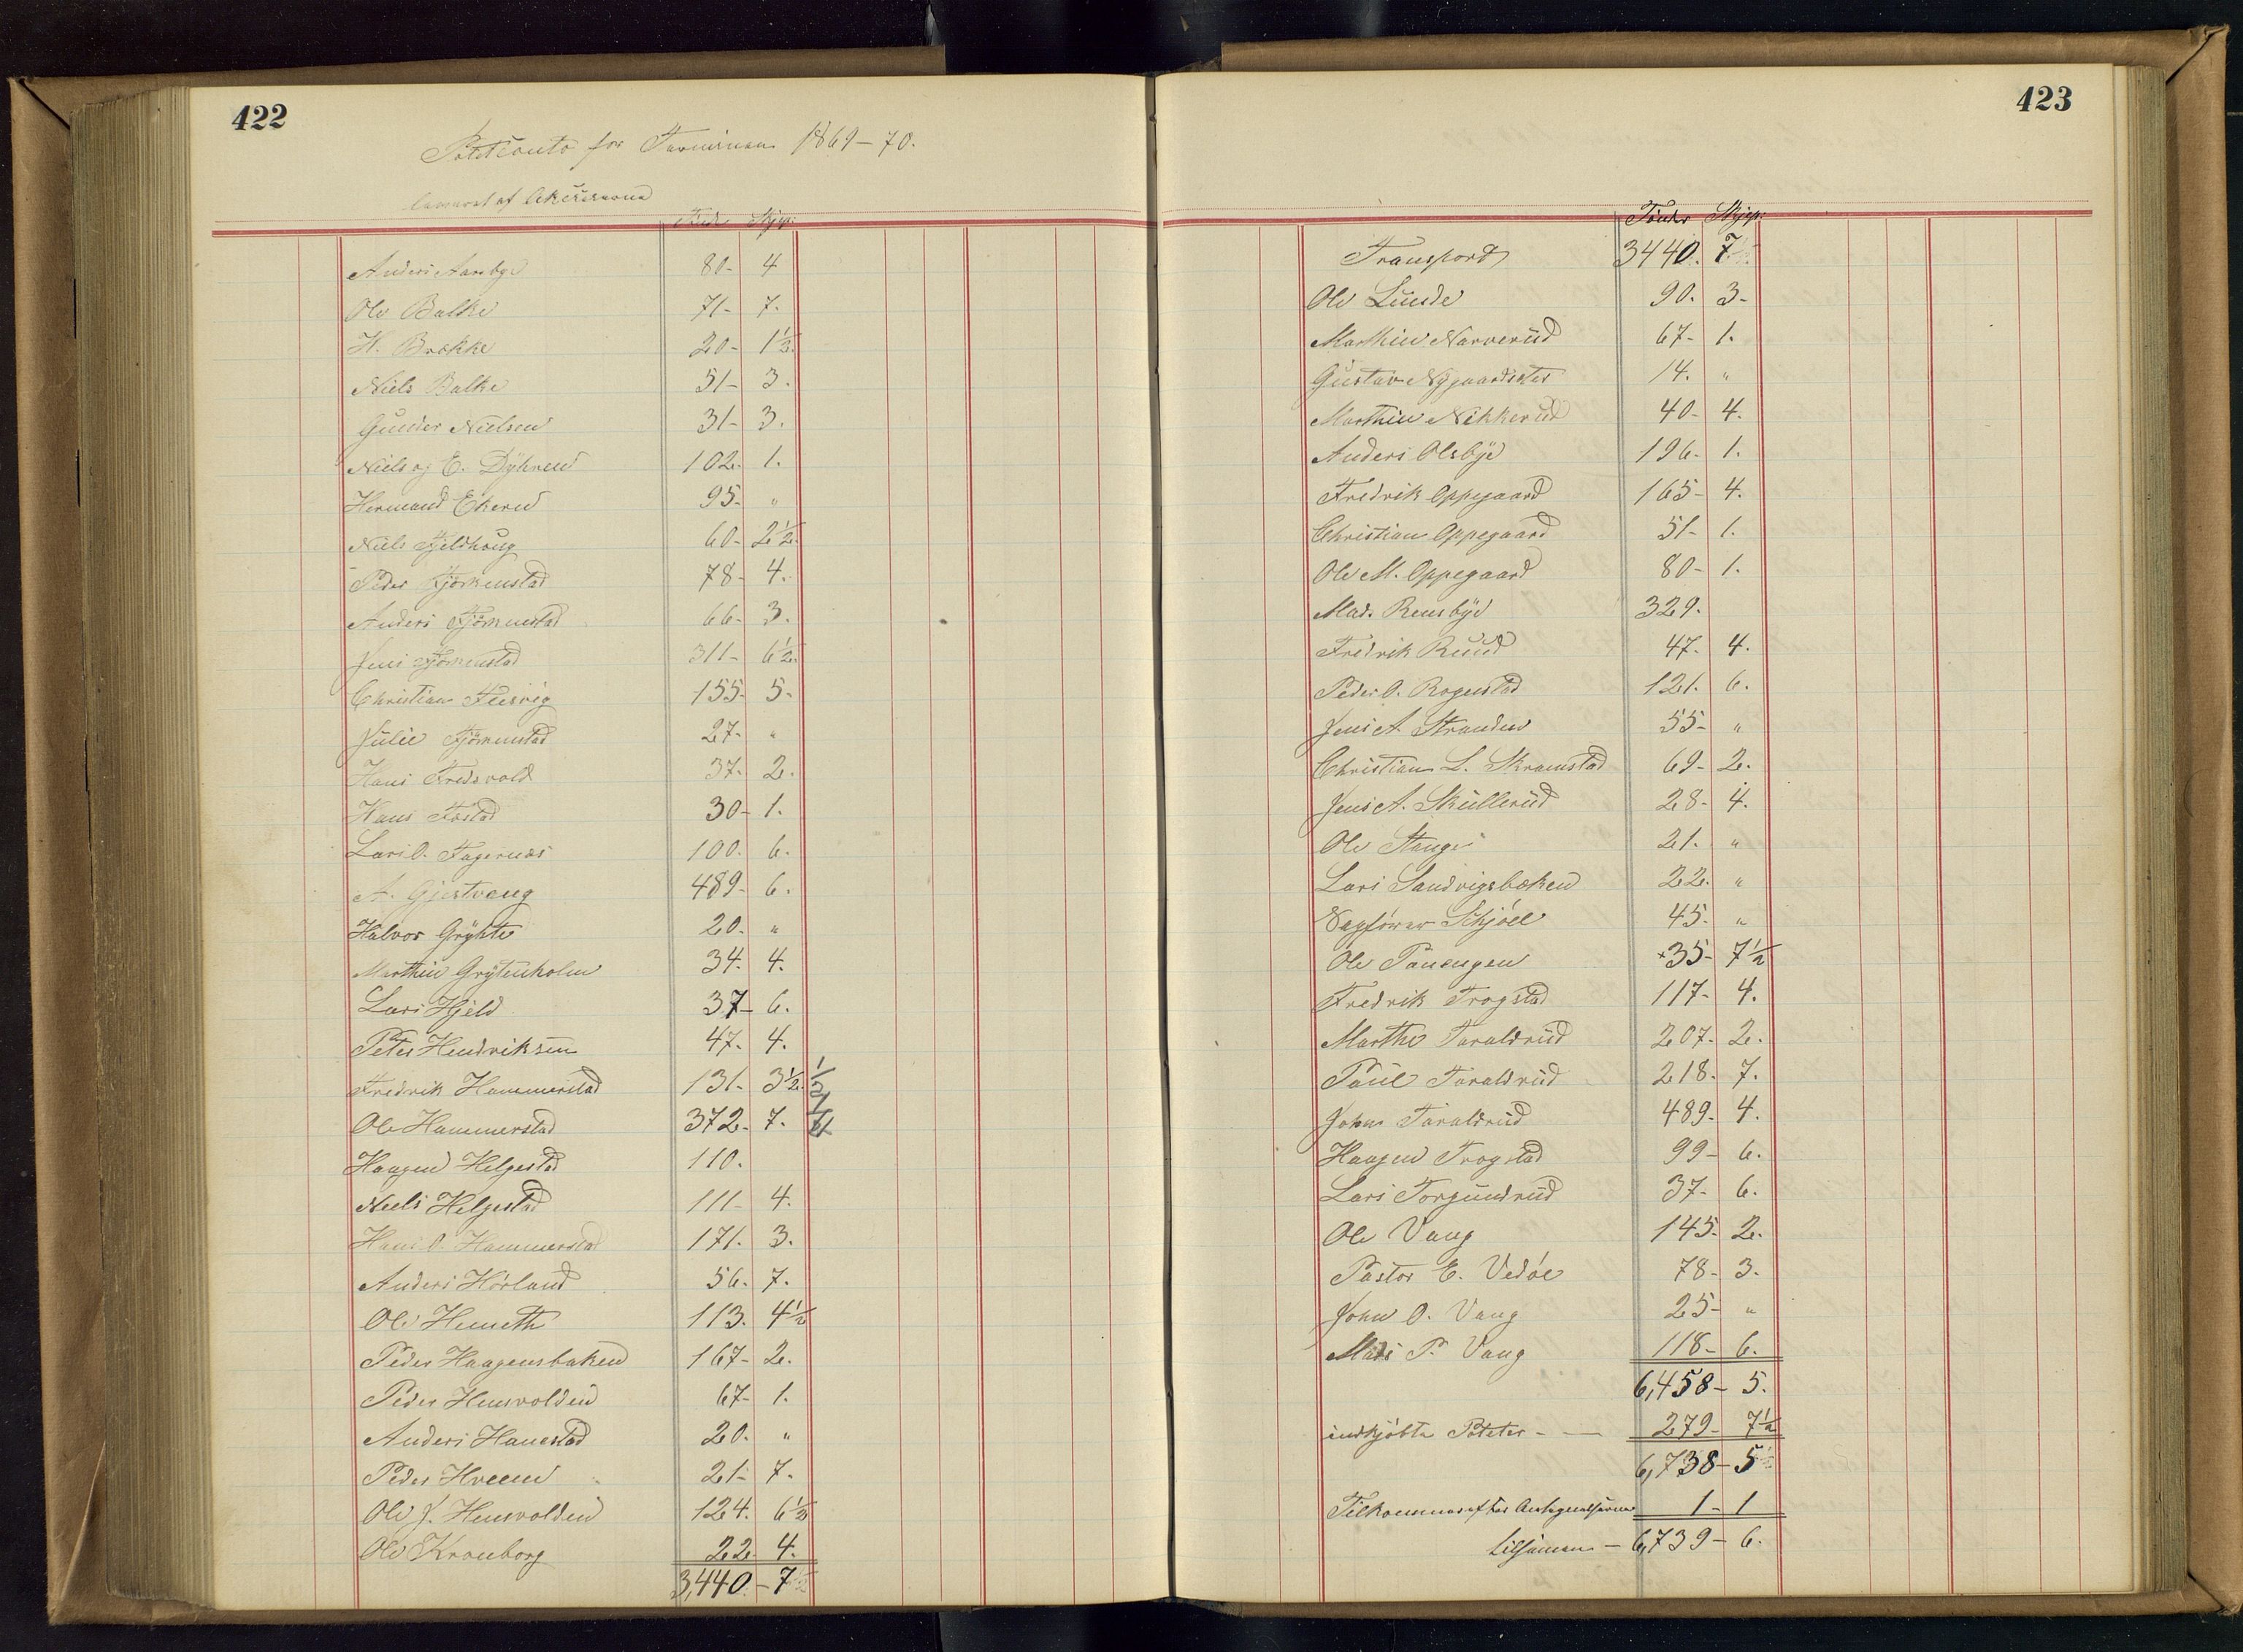 422
Potetconto for Terminen 1869–70.
leveret af
Tønder Skjep:
Anders Aarsbye 80- 4
Ole Balke 71- 7.
H. Brække 20- 1½.
Niels Balke 51- 3.
Gunder Nielsen 31- 3.
Niels og E. Dyhren 102. 1.
Hermand Ekern 95. "
Niels Fjeldhoug 60- 2½.
Peder Kjømenstad 78- 4.
Anders Fjømenstad 66- 3.
Jens Fjømenstad 311- 6½.
Christian Flesvig 155. 5.
Julie Fjømenstad 27- "
Hans Fredsvold 37. 2.
Hans Fostad 30- 1.
Lars O. Fagernæs 100. 6.
A. Gjestvang 489- 6.
Halvor Gryhte 20. "
Marthin Grytenholm 34. 4.
Lars Hjeld 37- 6.
Peter Hendriksen 47. 4.
Fredrik Hammerstad 131- 3½. ½
Ole Hammerstad 372- 7.
Haagen Helgestad 110.
Neels Helgestad 111- 4.
Hans O. Hammerstad 171. 3.
Anders Hörland 56. 7.
Ole Hemeth 113. 4½
Peder Haagensbaken 167- 2.
Peder Hensvolden 67- 1.
Anders Hanestad 20. "
Peder Hveem 21- 7.
Ole J. Hensvolden 124. 6½
Ole Kronborg 22 4.
3,440 - 7½
423
Tønder Skjep:
Transport 3440. 7½
Ole Lunde 90. 3-
Marthin Narverud 67- 1.
Gustav Nygaardseter 14. "
Marthin Nikkerud 40- 4.
Anders Olsbye 196- 1.
Fredrik Oppegaard 165- 4.
Christian Oppegaard 51- 1.
Ole M. Oppegaard 80- 1.
Mads Rensbye 329.
Fredrik Ruud 47- 4.
Peder O. Rogenstad 121. 6.
Jens A Stranden 55- "
Christian L. Skramstad 69- 2.
Jens A. Skullerud 28- 4.
Ole Stange 21. "
Lars Sandvigsbaken 22. "
Sagfører Schjöll 45. "
Ole Panengen +35- 7½
Fredrik Trogstad 117- 4.
Marthe Taraldrud 207- 2.
Paul Taraldrud 218- 7.
John Taraldrud 489- 4.
Haagen Trogstad 99- 6.
Lars Torgundrud 37- 6.
Ole Vang 145. 2.
Pastor E. Vedöe 78- 3.
John O. Vang 25- "
Mads P. Vang 118- 6.
6,458- 5.
indkjöbte Poteter - — 279- 7½
6,738- 5½
Tilkommer efter 1- 1
tilsamen - 6,739- 6.